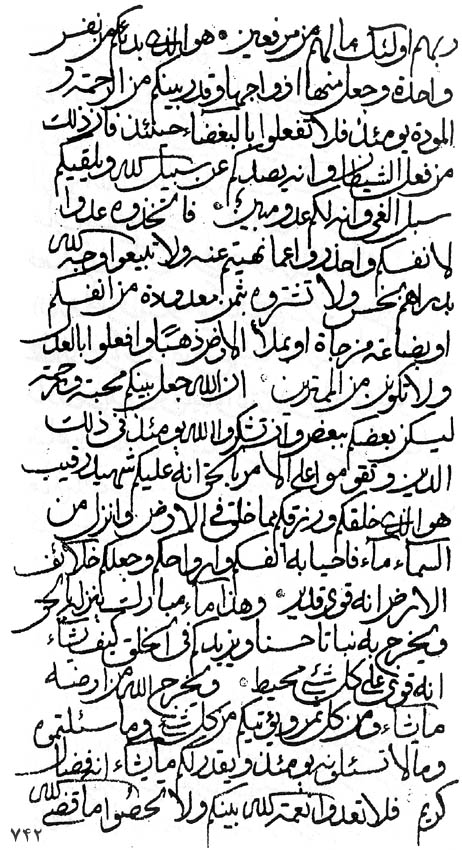 ربهم اولئك مالهم من مرفعين * هو الذي بدعكم من نفس
واحدة وجعل منها ازواجها وقدر بينكم من الرحمة و
المودة يومئذ فلا تفعلوا بالبغضاء حينئذ فان ذلك
من فعل الشيطان وانه يصدكم عن سبيل الله ويلقيكم
سبل الغي وانه لكم عدو مبين * فاتخذوه عدوا
لانفسكم واحذروا عما نهيتم عنه ولا تبيعوا وجه الله
بدراهم بخس ولا تشتروه بثمن معدودة من انفسكم
او بضاعة مزجاة او بملأ الارض ذهبا وافعلوا بالعدل
ولا تكونن من الممترين * ان الله جعل بينكم محبة ورحمة
ليسكن بعضكم ببعض وان تشكروا الله يومئذ في ذلك
الدين وتقوموا على الامر بالحق انه عليكم شهيد رقيب
هو الذي خلقكم ورزقكم بما خلق في الارض وانزل من
السماء ماء فاحيا به انفسكم وارواحكم وجعلكم خلائف
الارض انه قوي قدير * وهذا ماء مبارك ينزل بالحق
ويخرج به نباتا حسنا ويزيدكم في الخلق كيف يشاء
انه قوي على كل شئ محيط * ويخرج الله من ارضه
ما يشاء ومن كل ثمر ويؤتيكم من كل شئ وما سئلتموه
وما لا تسئلونه يومئذ ويقدر لكم ما يشاء انه فضال
كريم فلا تعدوا نعمة الله بينكم ولا تحصوا ما قضى الله
٧٤٢